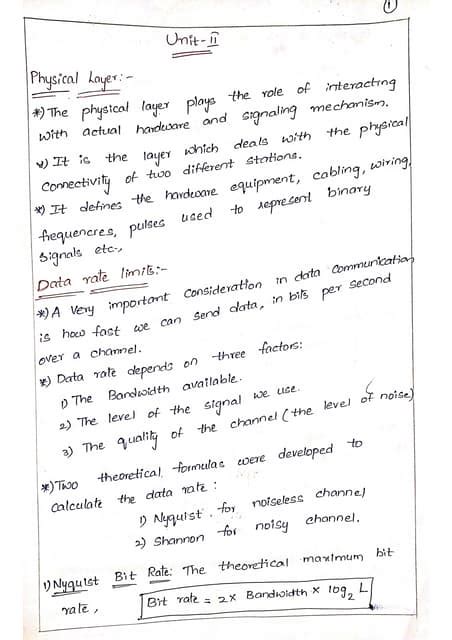 1
Unit-II
Physical Layer:-
*) The physical layer plays the role of interacting
with actual hardware and signaling mechanism.
*) It is the layer which deals with the physical
Connectivity of two different stations.
*) It defines the hardware equipment, cabling, wiring,
frequencres, pulses used to represent binary
signals etc.,
Data rate limits:-
*) A Very important Consideration in data Communication
is how fast we can send data, in bits per second
over a channel.
*) Data rate depends on three factors:
1) The Bandwidth available.
2) The level of the signal we use.
3) The quality of the channel (the level of noise)
*) Two theoretical formulas were developed to
Calculate the data rate:
1) Nyquist for noiseless channel
2) Shannon for noisy channel.
1) Nyquist Bit Rate: The theoretical maximum bit
rate,
Bit rate = 2 x Bandwidth x log₂ L